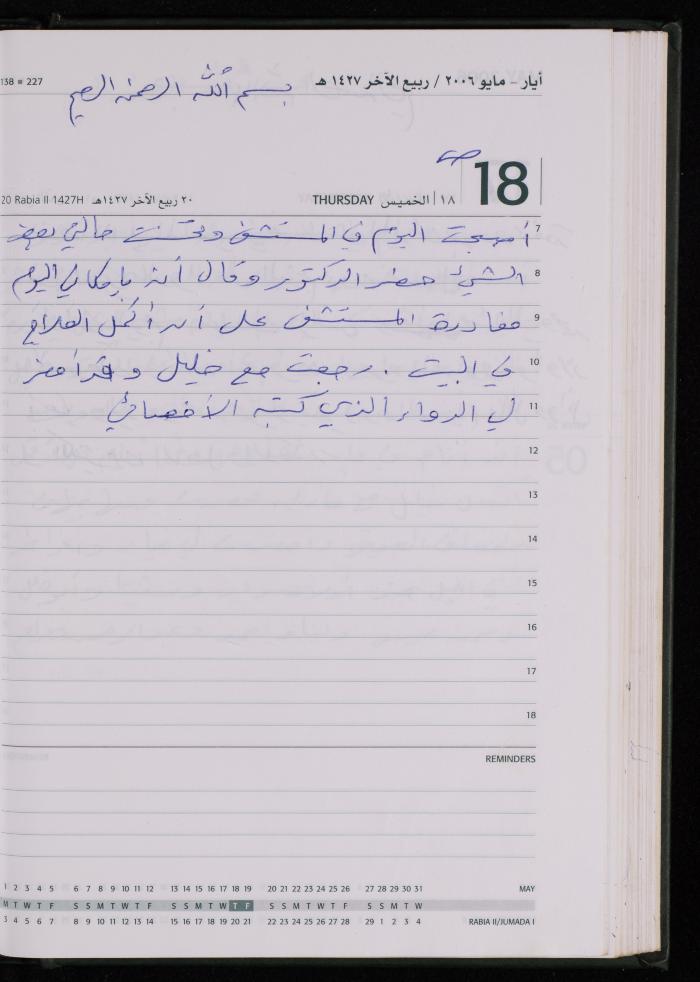 138 = 227
أيار - مايو ٢٠٠٦ / ربيع الآخر ١٤٢٧ هـ
بسم الله الرحمن الرحيم
18
20 Rabia II 1427H ٢٠ ربيع الآخر ١٤٢٧هـ THURSDAY الخميس ١٨
7 أصبحت اليوم في المستشفى وتحسنت حالتي بعض
8 الشيء حضر الدكتور وقال أنه بإمكاني اليوم
9 مغادرة المستشفى على أن أكمل العلاج
10 في البيت . رجعت مع خليل وقد أحضر
11 لي الدواء الذي كتبه الأخصائي
12
13
14
15
16
17
18
REMINDERS
1 2 3 4 5 6 7 8 9 10 11 12 13 14 15 16 17 18 19 20 21 22 23 24 25 26 27 28 29 30 31 MAY
M T W T F S S M T W T F S S M T W T F S S M T W T F S S M T W
3 4 5 6 7 8 9 10 11 12 13 14 15 16 17 18 19 20 21 22 23 24 25 26 27 28 29 1 2 3 4 RABIA II/JUMADA I